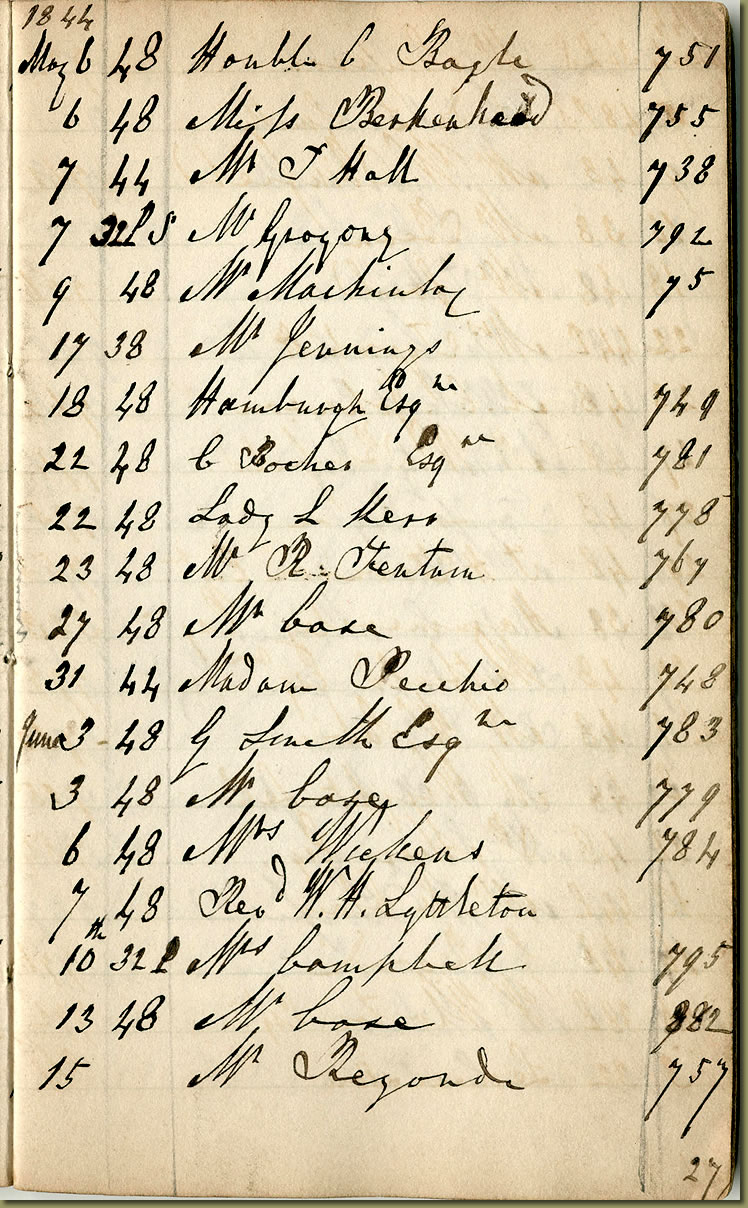 1844
May 6 48 Honble C Bagle 751
6 48 Miss Berkenhead 755
7 44 Mr T Hall 738
7 32 P S Mr Grogony 792
9 48 Mr Mackinlay 75
17 38 Mr Jennings
18 48 Hamburgh Esqre 749
22 48 C Rocher Esqre 781
22 48 Lady L Kerr 778
23 48 Mr R. Fentum 767
27 48 Mr Case 780
31 44 Madam Pecchio 748
June 3 - 48 G Smith Esqre 783
3 48 Mr Case 779
6 48 Mrs Wickens 784
7 48 Revd W. H. Lyttleton
10th 32 P Mrs Campbell 795
13 48 Mr Case 882
15 Mr Regondi 757
27